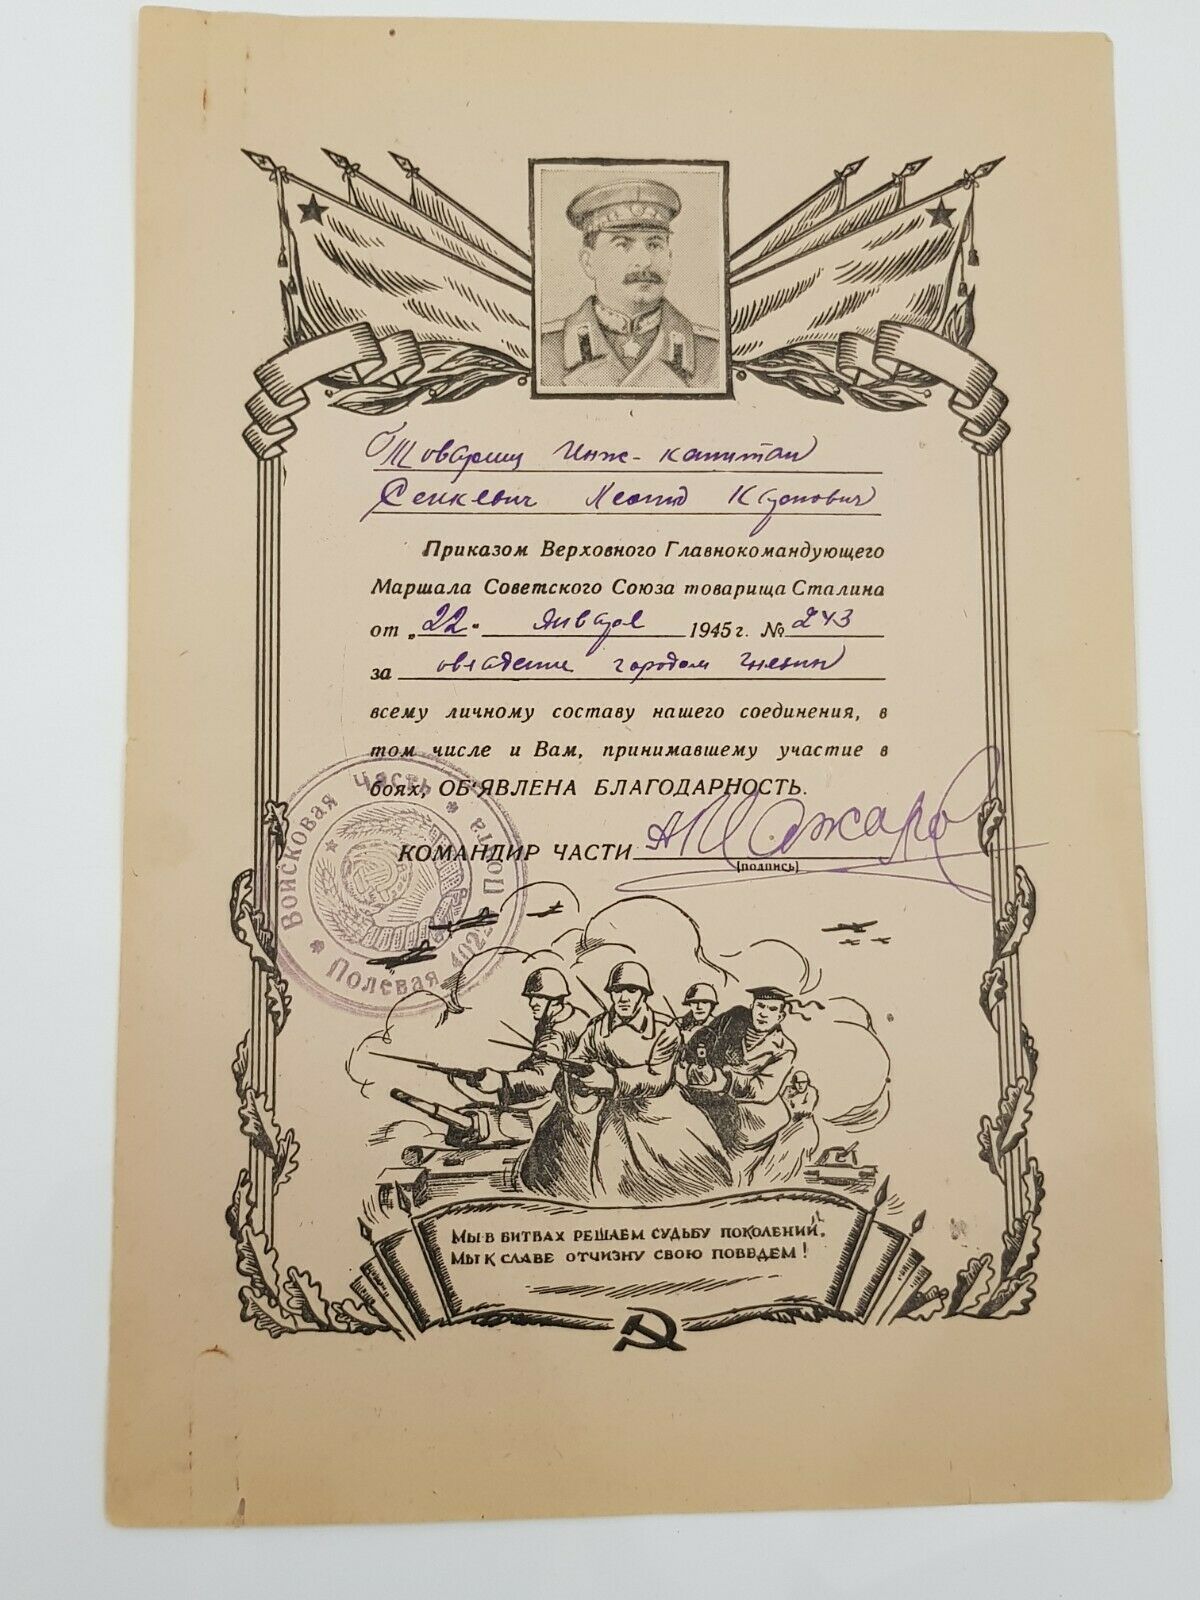 Товарищ Инж-капитан
Сенкевич Леонид
Приказом Верховного Главнокомандующего
Маршала Советского Союза товарища Сталина
от „22“ января 1945 г. № 243
за овладение городом Гнезен
всему личному составу нашего соединения, в
том числе и Вам, принимавшему участие в
боях, ОБ'ЯВЛЕНА БЛАГОДАРНОСТЬ.
КОМАНДИР ЧАСТИ
(подпись)
Войсковая Часть * Полевая Почта *
МЫ В БИТВАХ РЕШАЕМ СУДЬБУ ПОКОЛЕНИЙ,
МЫ К СЛАВЕ ОТЧИЗНУ СВОЮ ПОВЕДЕМ!